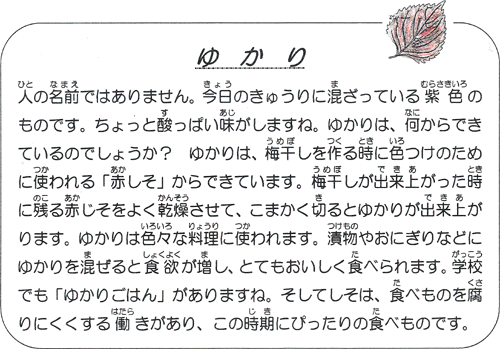 ゆかり
人の名前ではありません。今日のきゅうりに混ざっている紫色の
ものです。ちょっと酸っぱい味がしますね。ゆかりは、何からでき
ているのでしょうか？　ゆかりは、梅干しを作る時に色つけのため
に使われる「赤しそ」からできています。梅干しが出来上がった時
に残る赤じそをよく乾燥させて、こまかく切るとゆかりが出来上が
ります。ゆかりは色々な料理に使われます。漬物やおにぎりなどに
ゆかりを混ぜると食欲が増し、とてもおいしく食べられます。学校
でも「ゆかりごはん」がありますね。そしてしそは、食べものを腐
りにくくする働きがあり、この時期にぴったりの食べものです。